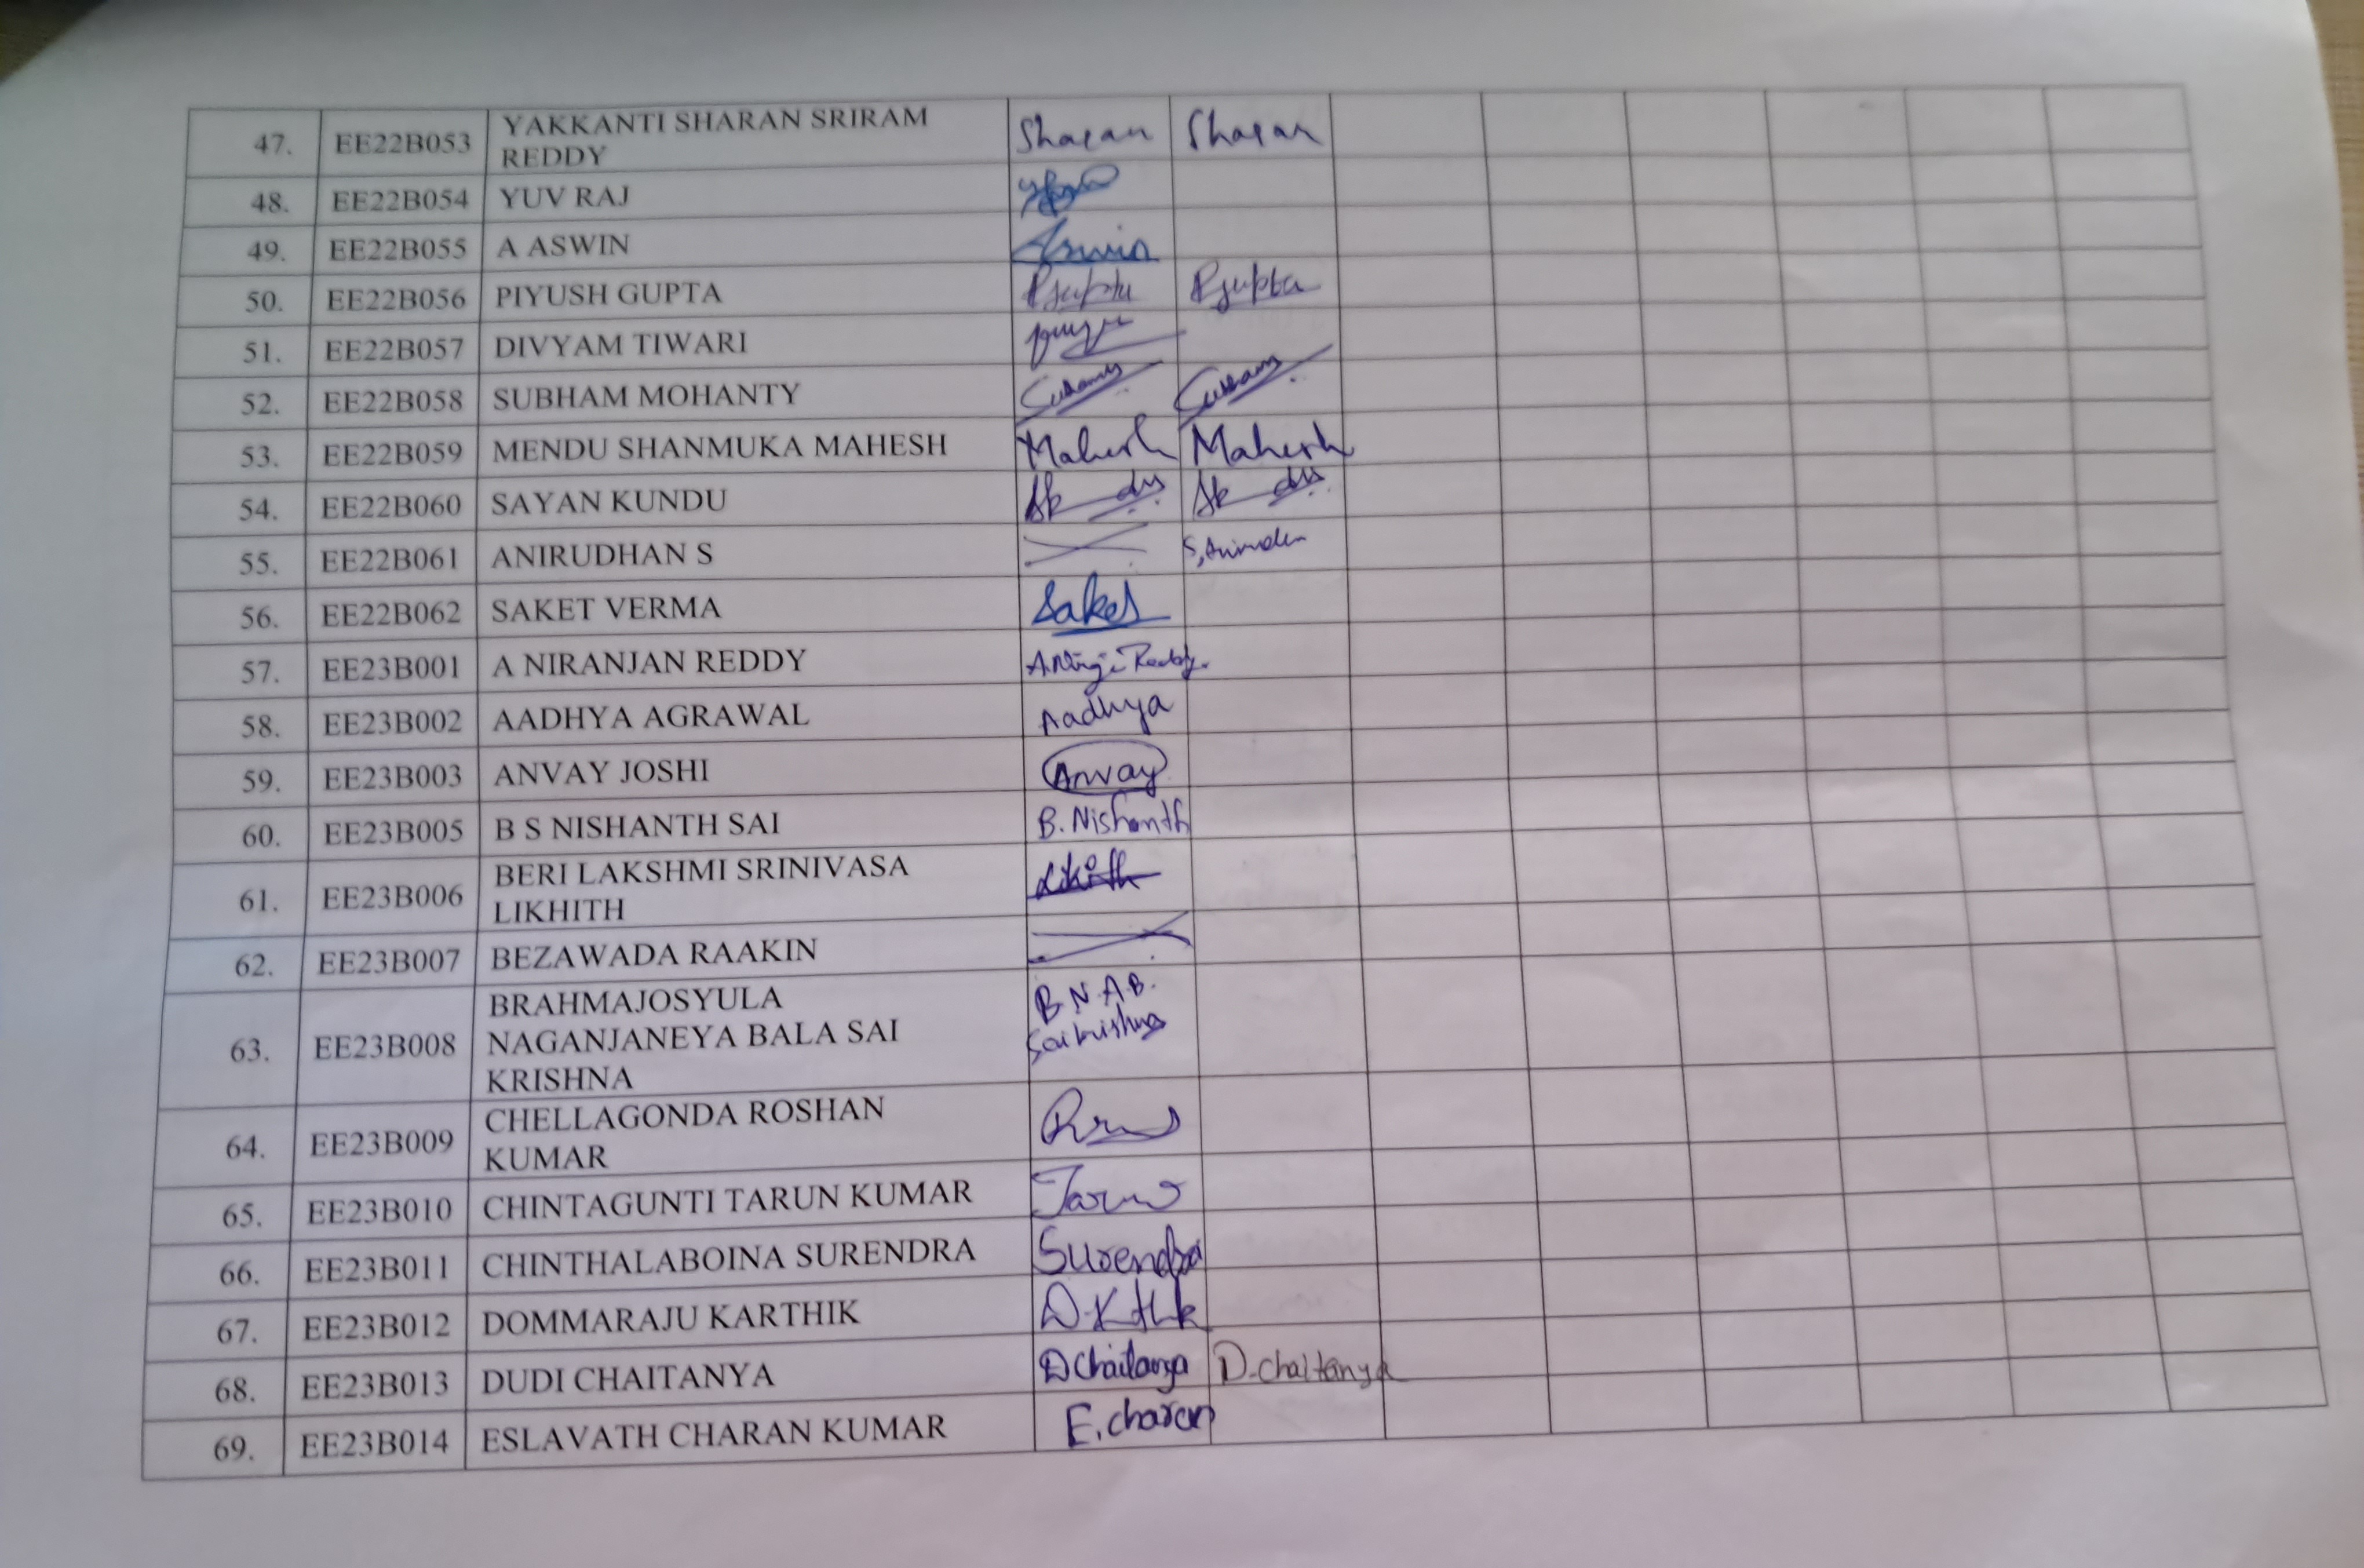 47. EE22B053 YAKKANTI SHARAN SRIRAM REDDY Sharan Sharan
48. EE22B054 YUV RAJ
49. EE22B055 A ASWIN Aswin
50. EE22B056 PIYUSH GUPTA Pgupta Pgupta
51. EE22B057 DIVYAM TIWARI
52. EE22B058 SUBHAM MOHANTY Subham Subham
53. EE22B059 MENDU SHANMUKA MAHESH Mahesh Mahesh
54. EE22B060 SAYAN KUNDU
55. EE22B061 ANIRUDHAN S
56. EE22B062 SAKET VERMA Saket
57. EE23B001 A NIRANJAN REDDY Reddy.
58. EE23B002 AADHYA AGRAWAL Aadhya
59. EE23B003 ANVAY JOSHI Anvay
60. EE23B005 B S NISHANTH SAI B. Nishanth
61. EE23B006 BERI LAKSHMI SRINIVASA LIKHITH Likith
62. EE23B007 BEZAWADA RAAKIN
63. EE23B008 BRAHMAJOSYULA NAGANJANEYA BALA SAI KRISHNA B.N.A.B. Saikrishna
64. EE23B009 CHELLAGONDA ROSHAN KUMAR
65. EE23B010 CHINTAGUNTI TARUN KUMAR Tarun
66. EE23B011 CHINTHALABOINA SURENDRA Surendra
67. EE23B012 DOMMARAJU KARTHIK
68. EE23B013 DUDI CHAITANYA D Chaitanya D. chaitanya
69. EE23B014 ESLAVATH CHARAN KUMAR E. charan